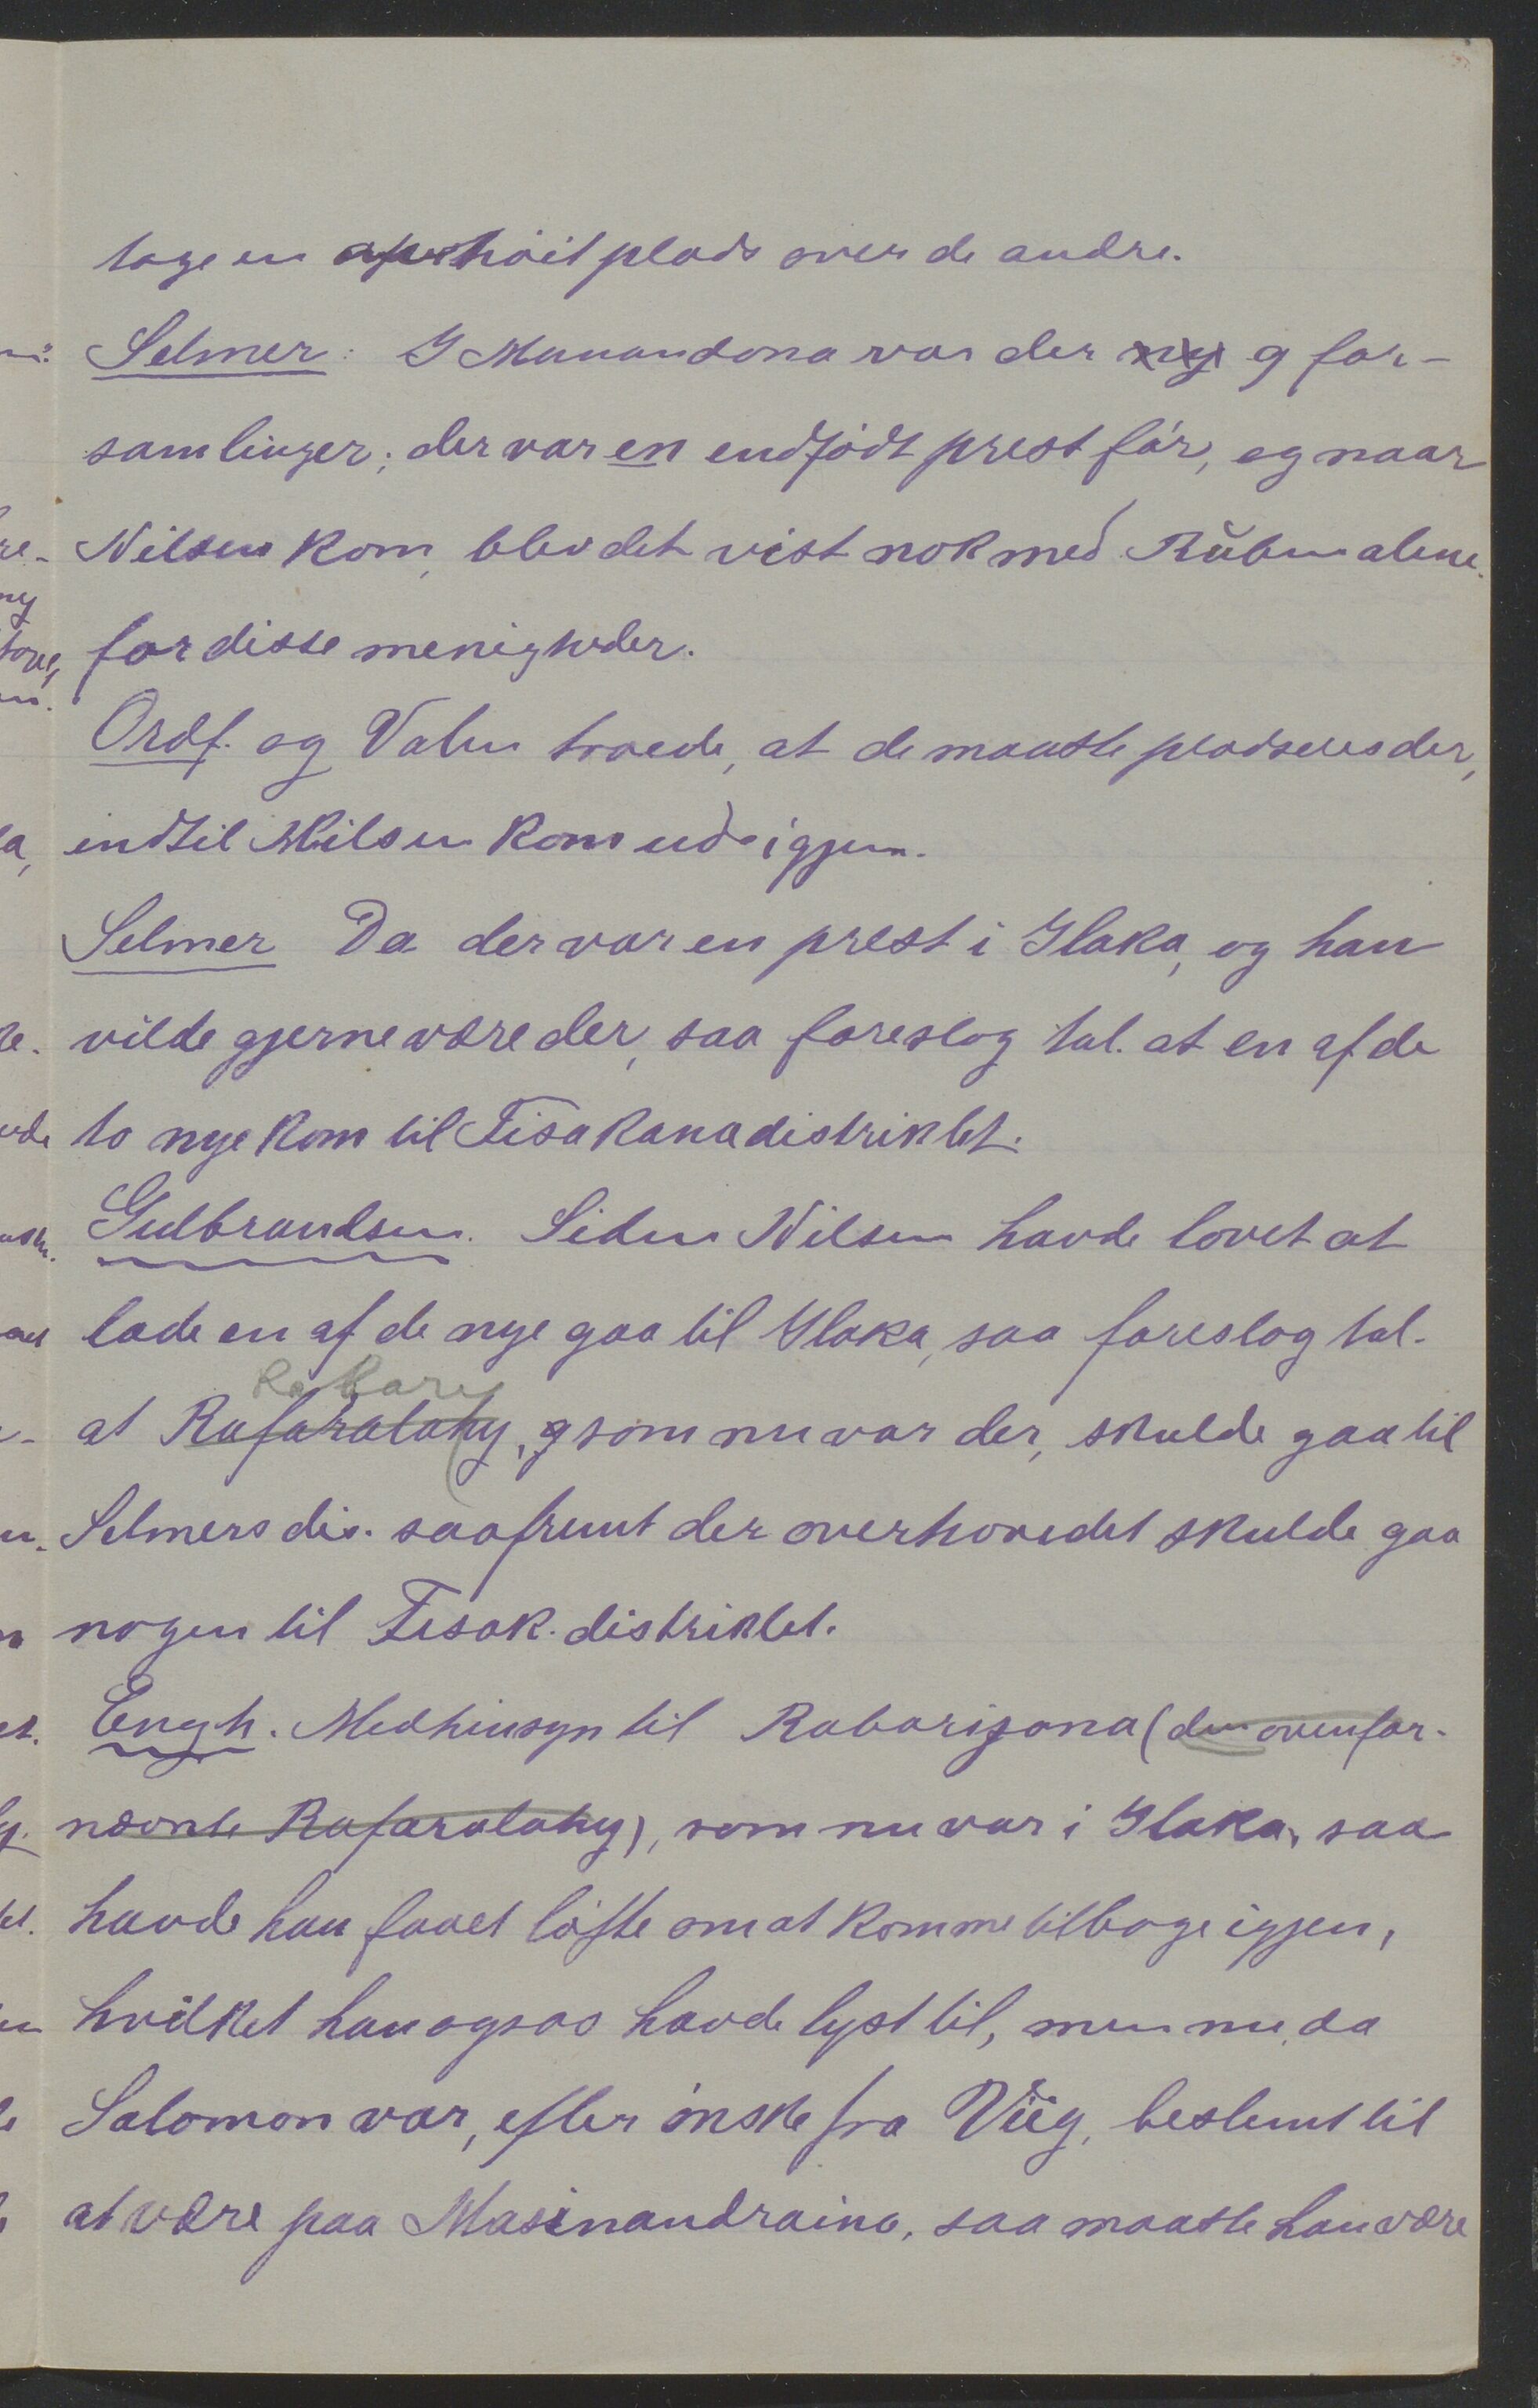 tage en ophöit plads over de andre.
Selmer: I Manandona var der 9 for-
samlinger; der var en endfödt prest för, og naar
Nilsen kom, blev det vist nok med Rŭben alene
for disse menigheder.
Ordf. og Valen troede, at de maatte pladseres der,
indtil Nilsen kom ud igjen.
Selmer Da der var en prest i Ilaka, og han
vilde gjerne være der, saa foreslog tal. at en af de
to nye kom til Fisakanadistriktet.
Gulbrandsen. Siden Nilsen havde lovet at
lade en af de nye gaa til Ilaka, saa foreslog tal.
Rabary
at Rafaralahy, som nu var der, skulde gaa til
Selmers dis. saafremt der overhovedet skulde gaa
nogen til Fisak. distriktet.
Engh. Medhensyn til Rabarijaona (den ovenfor-
nævnte Rafaralahy), som nu var i Ilaka, saa
havde han faaet löfte om at komme tilbage igjen,
hvilket han ogsaa havde lyst til, men nu, da
Salomon var, efter önske fra Viig, bestemt til
at være paa Masinandraina, saa maatte han være